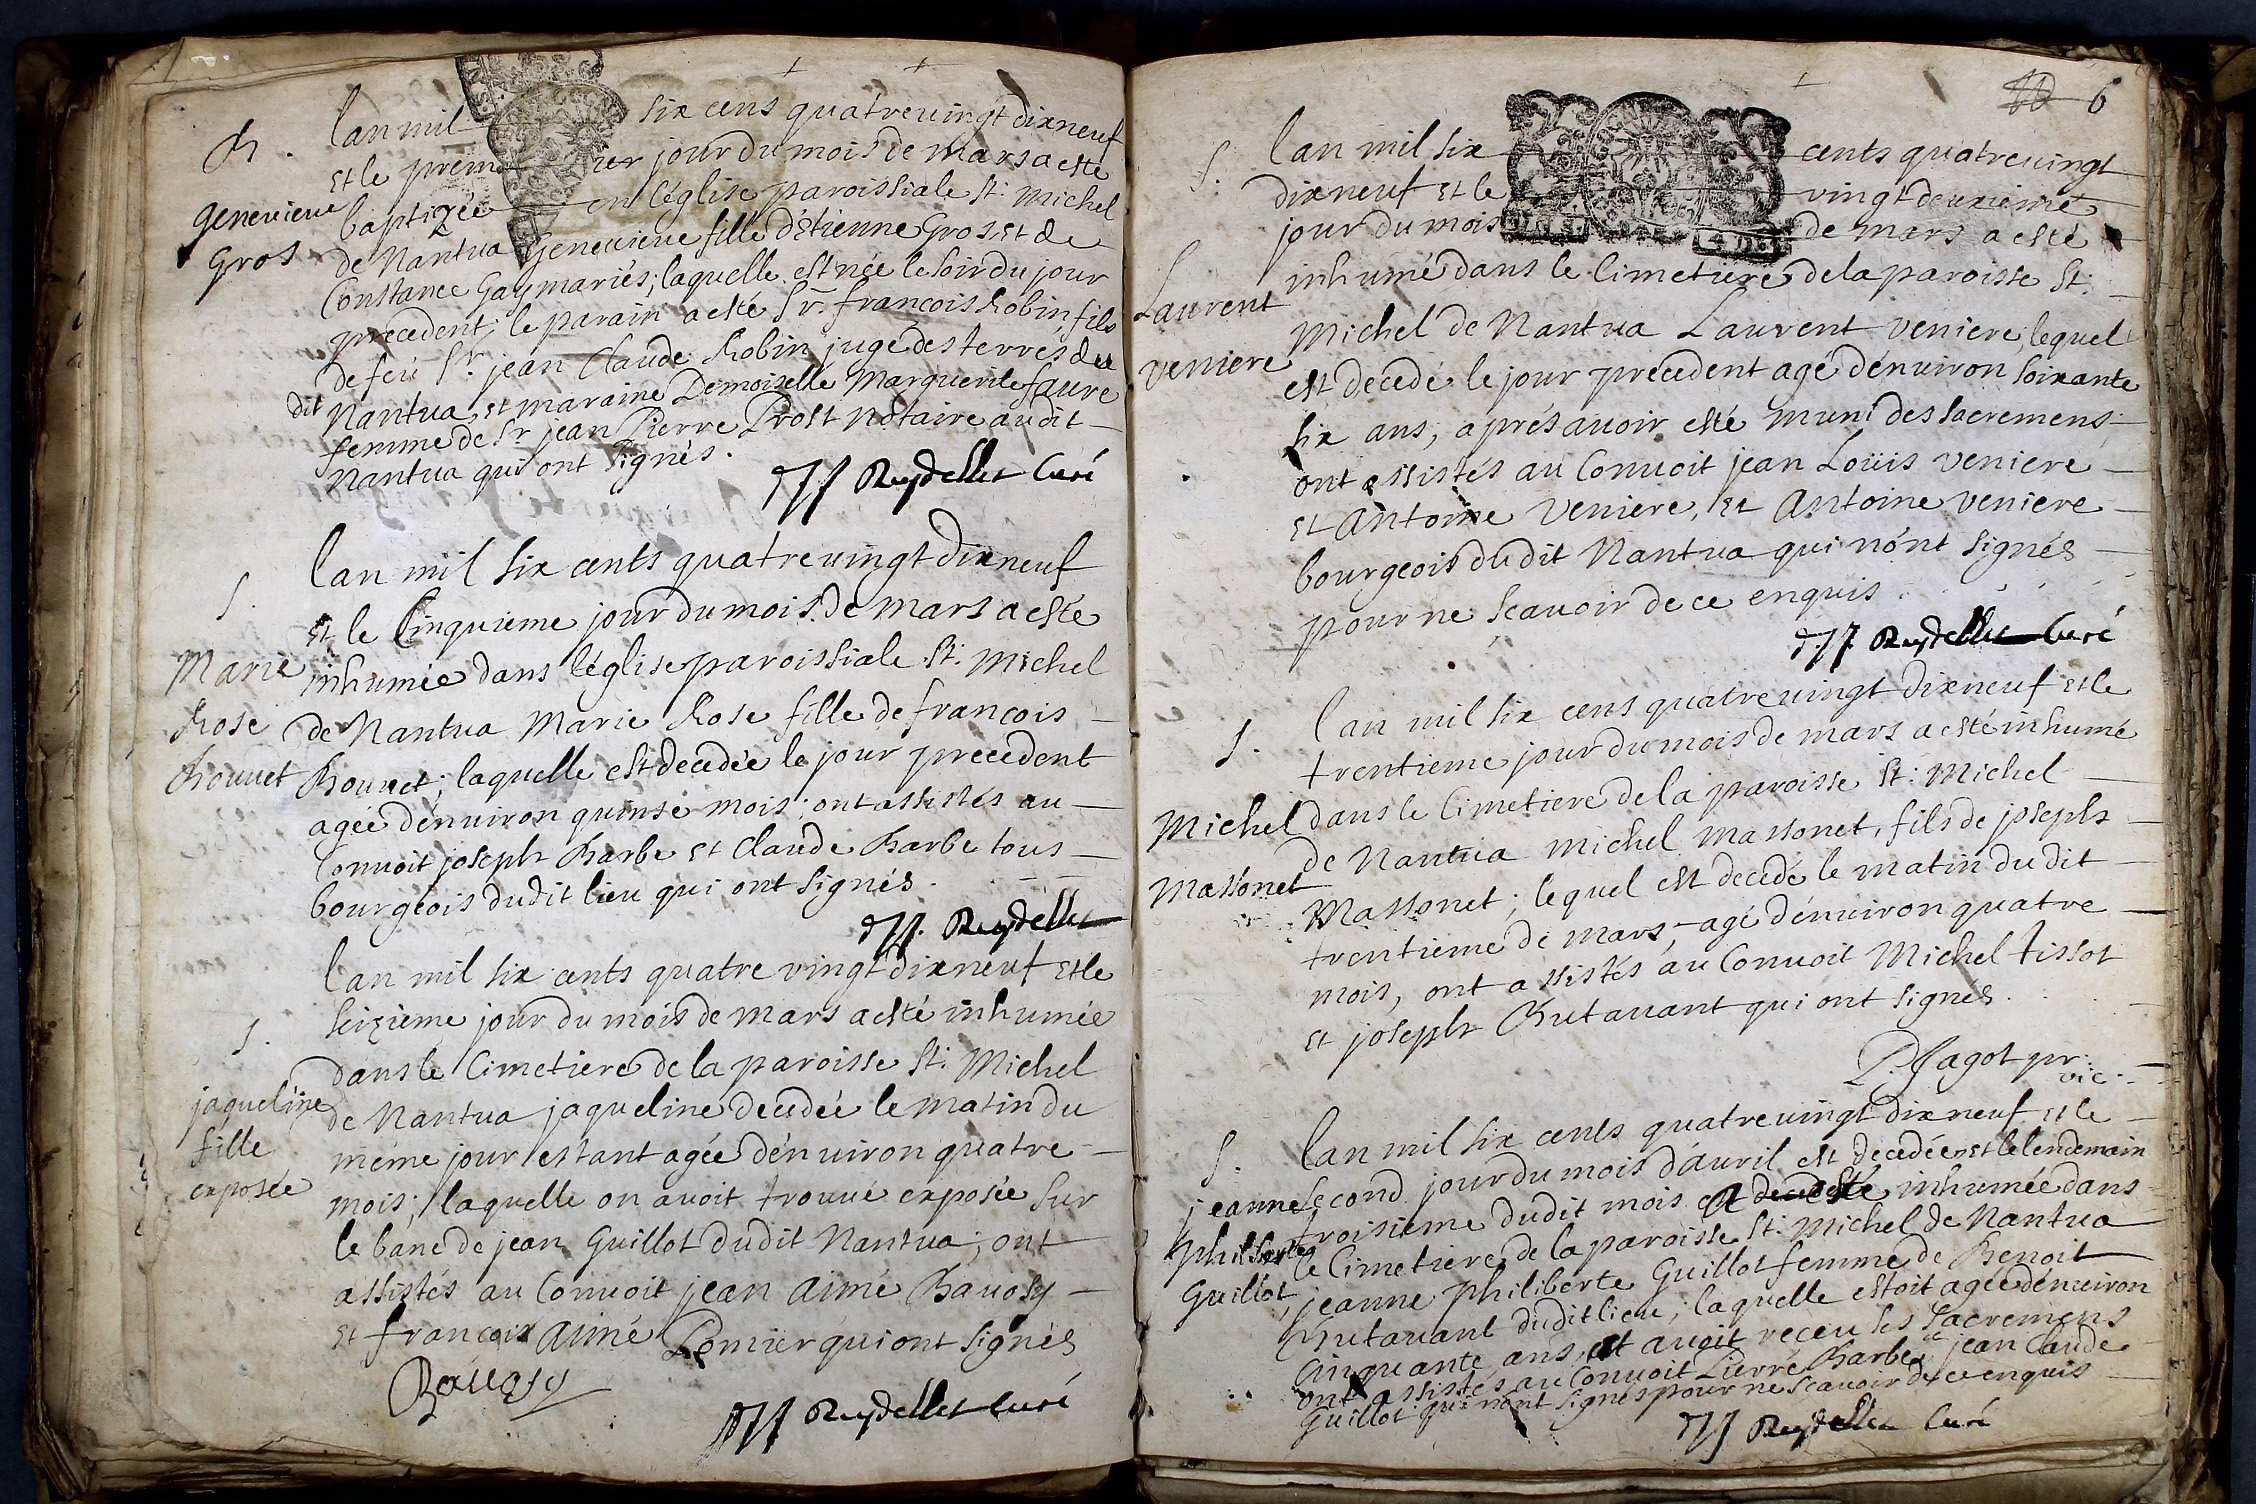 B.
Genevieve
Gros
lan mil six cens quatrevingt dixneuf
et le premier jour du mois de mars a esté
baptizée en l'église paroissiale St. Michel
de Nantua Genevieve fille d'étienne Gros, et de
Constance Gay mariés; laquelle est née le soir du jour
precedent; le parain a esté Sr. françois Robin, fils
de feu Sr. jean Claude Robin juge des terres du
dit Nantua, et maraine Demoiselle Marguerite faure
femme de Sr. jean Pierre Prost Notaire audit
Nantua qui ont signés.
Reydellet Curé
S.
Marie
Rose
Bouvet
lan mil six cents quatrevingt dixneuf
et le Cinquieme jour du mois de mars a esté
inhumée dans l'église paroissiale St. Michel
de Nantua Marie Rose fille de françois
Bouvet; laquelle est decedée le jour precedent
agée d'enuiron quinse mois; ont assistés au
Conuoit joseph Barbe et Claude Barbe tous
bourgeois dudit lieu qui ont signés.
Reydellet
S.
jaqueline
fille
exposée
lan mil six cents quatre vingt dixneuf et le
seizieme jour du mois de mars a esté inhumée
dans le Cimetiere de la paroisse St. Michel
de Nantua jaqueline decedée le matin du
méme jour estant agée d'enuiron quatre
mois; laquelle on auoit trouué exposée sur
le banc de jean Guillot dudit Nantua; ont
assistés au Conuoit jean aimé Bauosy
et françois aimé Pomier qui ont signés
Bauosy
Reydellet Curé
6
S.
Laurent
veniere
lan mil six cents quatrevingt
dixneuf et le vingt deuxiemé
jour du mois de mars a esté
inhumé dans le Cimetiere de la paroisse St.
Michel de Nantua Laurent veniere, lequel
est decedé le jour precedent agé d'enuiron soixante
six ans, aprés auoir esté muni des sacremens;
ont assistés au Conuoit jean Loüis veniere
et Antoine Veniere, et Antoine veniere
bourgeois dudit Nantua qui n'ont signés
pour ne scauoir de ce enquis.
Reydellet Curé
S.
Michel
Massonet
lan mil six cens quatrevingt dixneuf et le
trentieme jour du mois de mars a esté inhumé
dans le Cimetiere de la paroisse St. Michel
de Nantua michel massonet, fils de joseph
Massonet; lequel est decedé le matin dudit
trentieme de mars, agé d'enuiron quatre
mois, ont assistés au Conuoit Michel tissot
et joseph Butauant qui ont signés.
Jagot pr.
vic.
S.
jeanne
philiberte
Guillot
lan mil six cents quatrevingt dixneuf et le
second jour du mois d'auril est decedée et le lendemain
troisieme dudit mois a esté inhumée dans
le Cimetiere de la paroisse St. Michel de Nantua
jeanne philiberte Guillot femme de Benoit
Butauant dudit lieu; laquelle estoit agée d'enuiron
cinquante ans, et auoit receu les sacremens
ont assistés au Conuoit Pierre Barbe et jean Claude
Guillot qui n'ont signés pour ne scauoir de ce enquis
Reydellet Curé